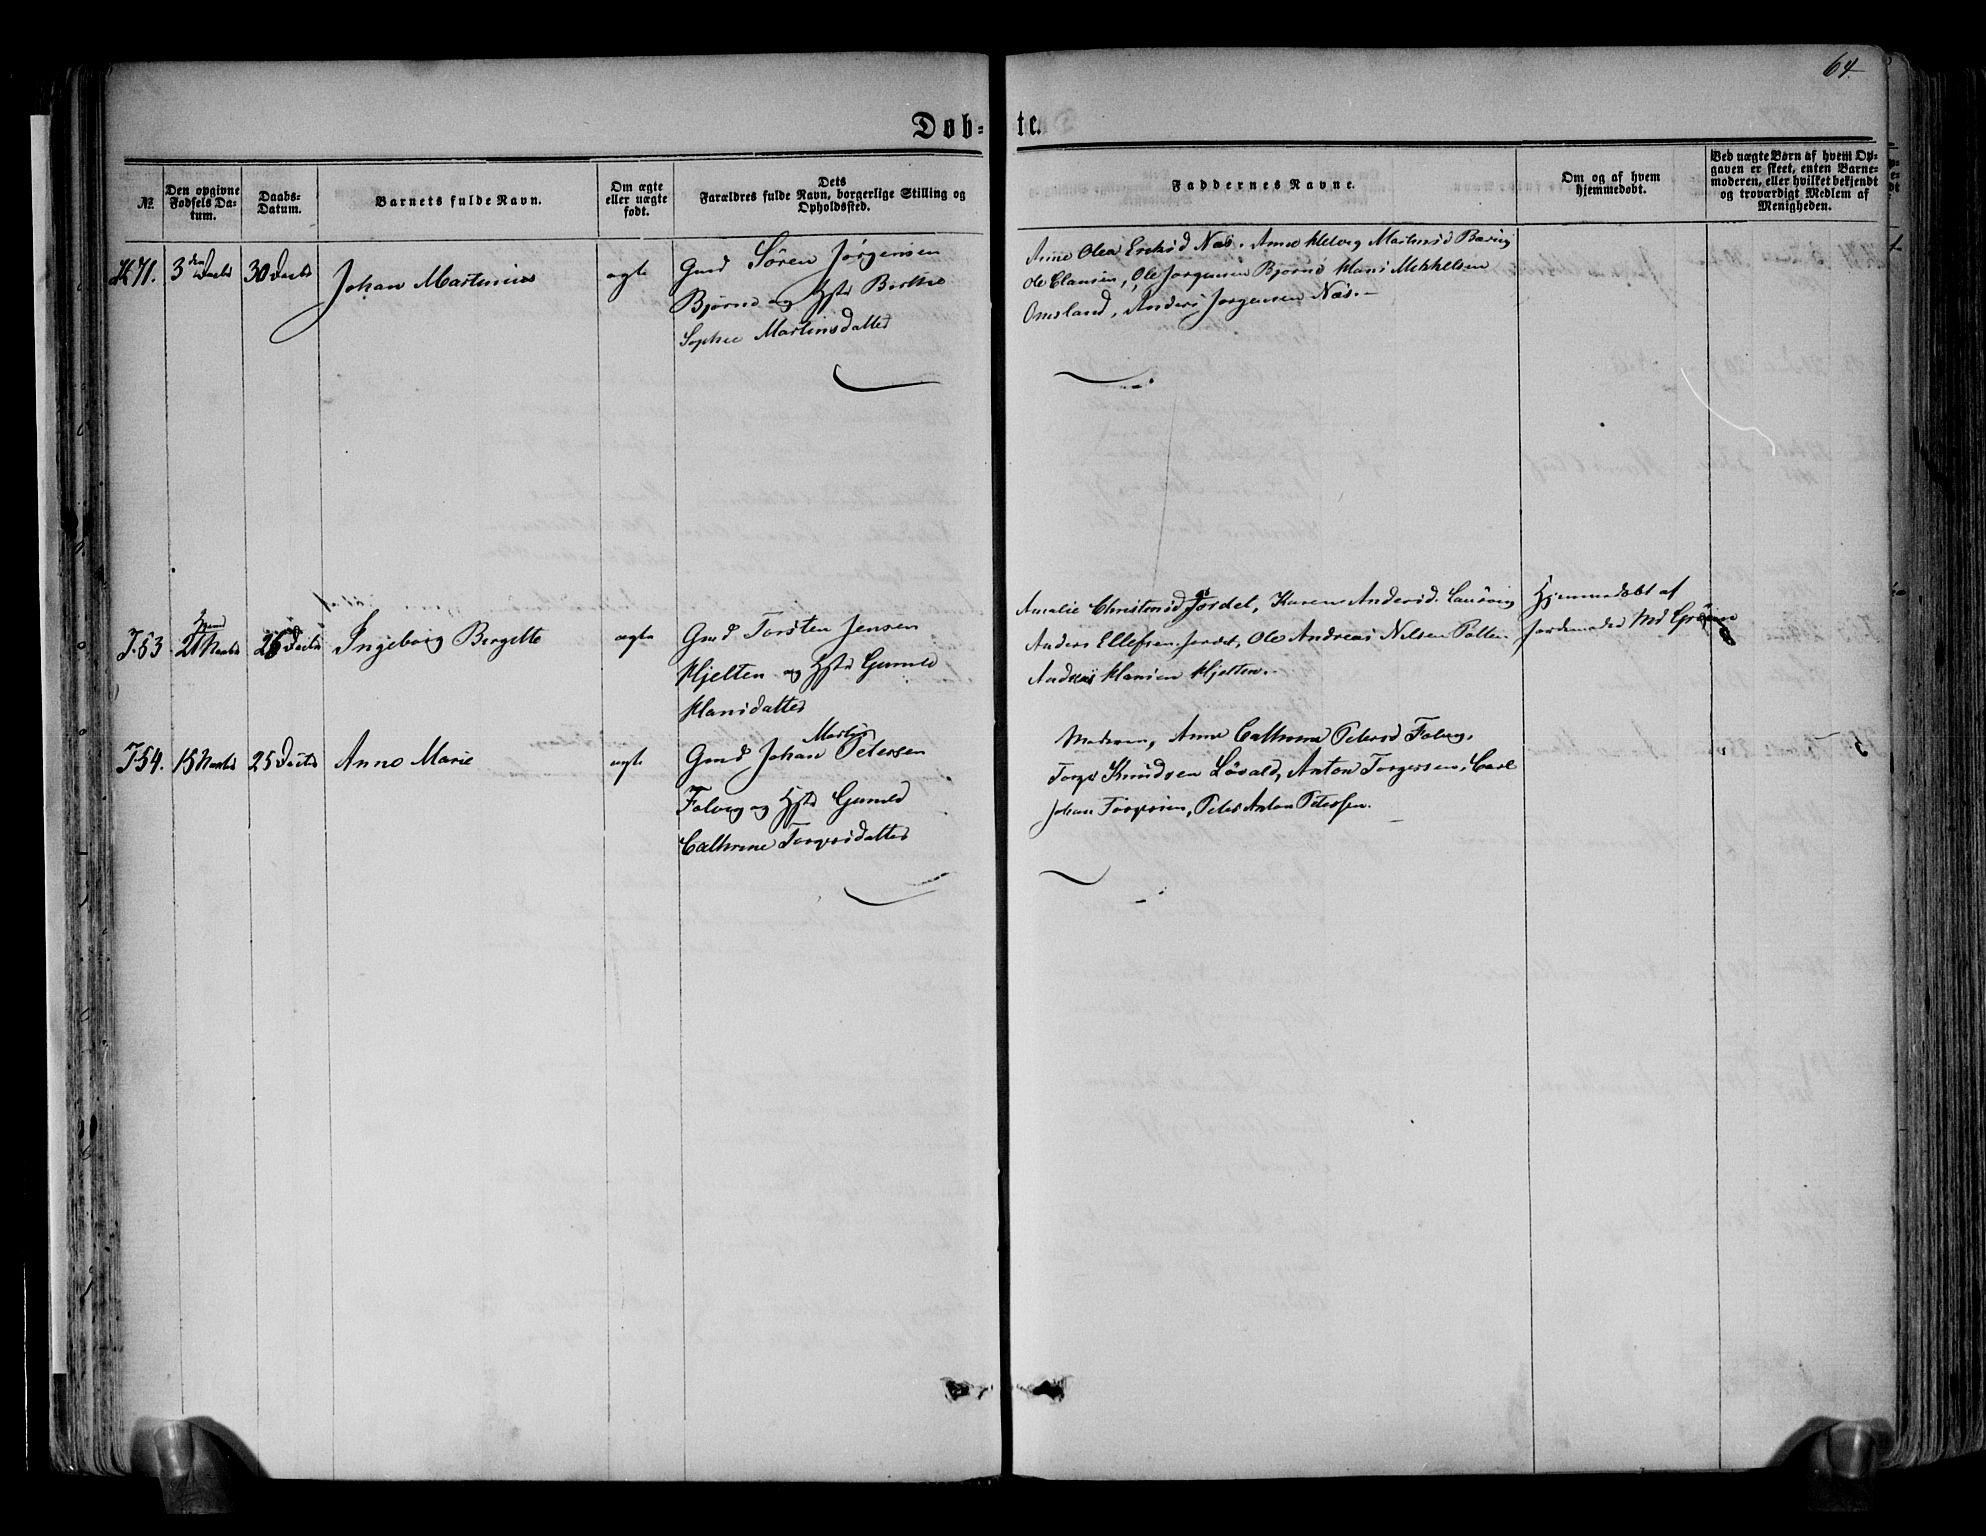 64
Døb-te.
No.
Den opgivne Fødsels Datum.
Daabs-Datum.
Barnets fulde Navn.
Om ægte eller uægte født.
Dets Forældres fulde Navn, borgerlige Stilling og Opholdssted.
Faddernes Navne.
Om og af hvem hjemmedøbt.
Ved uægte Børn af hvem Opgaven er skeet, enten Barnemoderen, eller hvilket bekjendt og troværdigt Medlem af Menigheden.
H 71.
3
30 Decbr
Johan Martinius
ægte
Gmd Sören Jörgensen
Bjørnø og Hst. Berthe
Sophie Martinsdatter
Anne Olea Ersksd Næs. Anne Helvig Martinsd
Ole Clausen, Ole Jorgensen Bjørnø Hans Mekkelsen
Omsland, Anders Jorgensen Næs.
J. 53
21 Novbr
26 Decbr
Ingeborg Bergitte
ægte
Gmd Torsten Jensen
Hjelten og Hst. Gunild
Hansdatter
Amalie Christensd Jordet, Karen Andersd.
Anders Ellefsen Jordet, Ole Andreas Nilsen
Andreas Hansen Hjelten.
Hjemmedøbt af
Jordemoder Md
J 54.
15 Novbr
25 Decbr
Anne Marie
ægte
Gmd Johan Martin Petersen
Falvig og Hst Gunild
Cathrine Torgersdatter
Moderen, Anne Cathrine Petersd Falvig.
Torger Knudsen Løvald, Anton Torgersen, Carl
Johan Torgersen, Peter Anton Petersen.